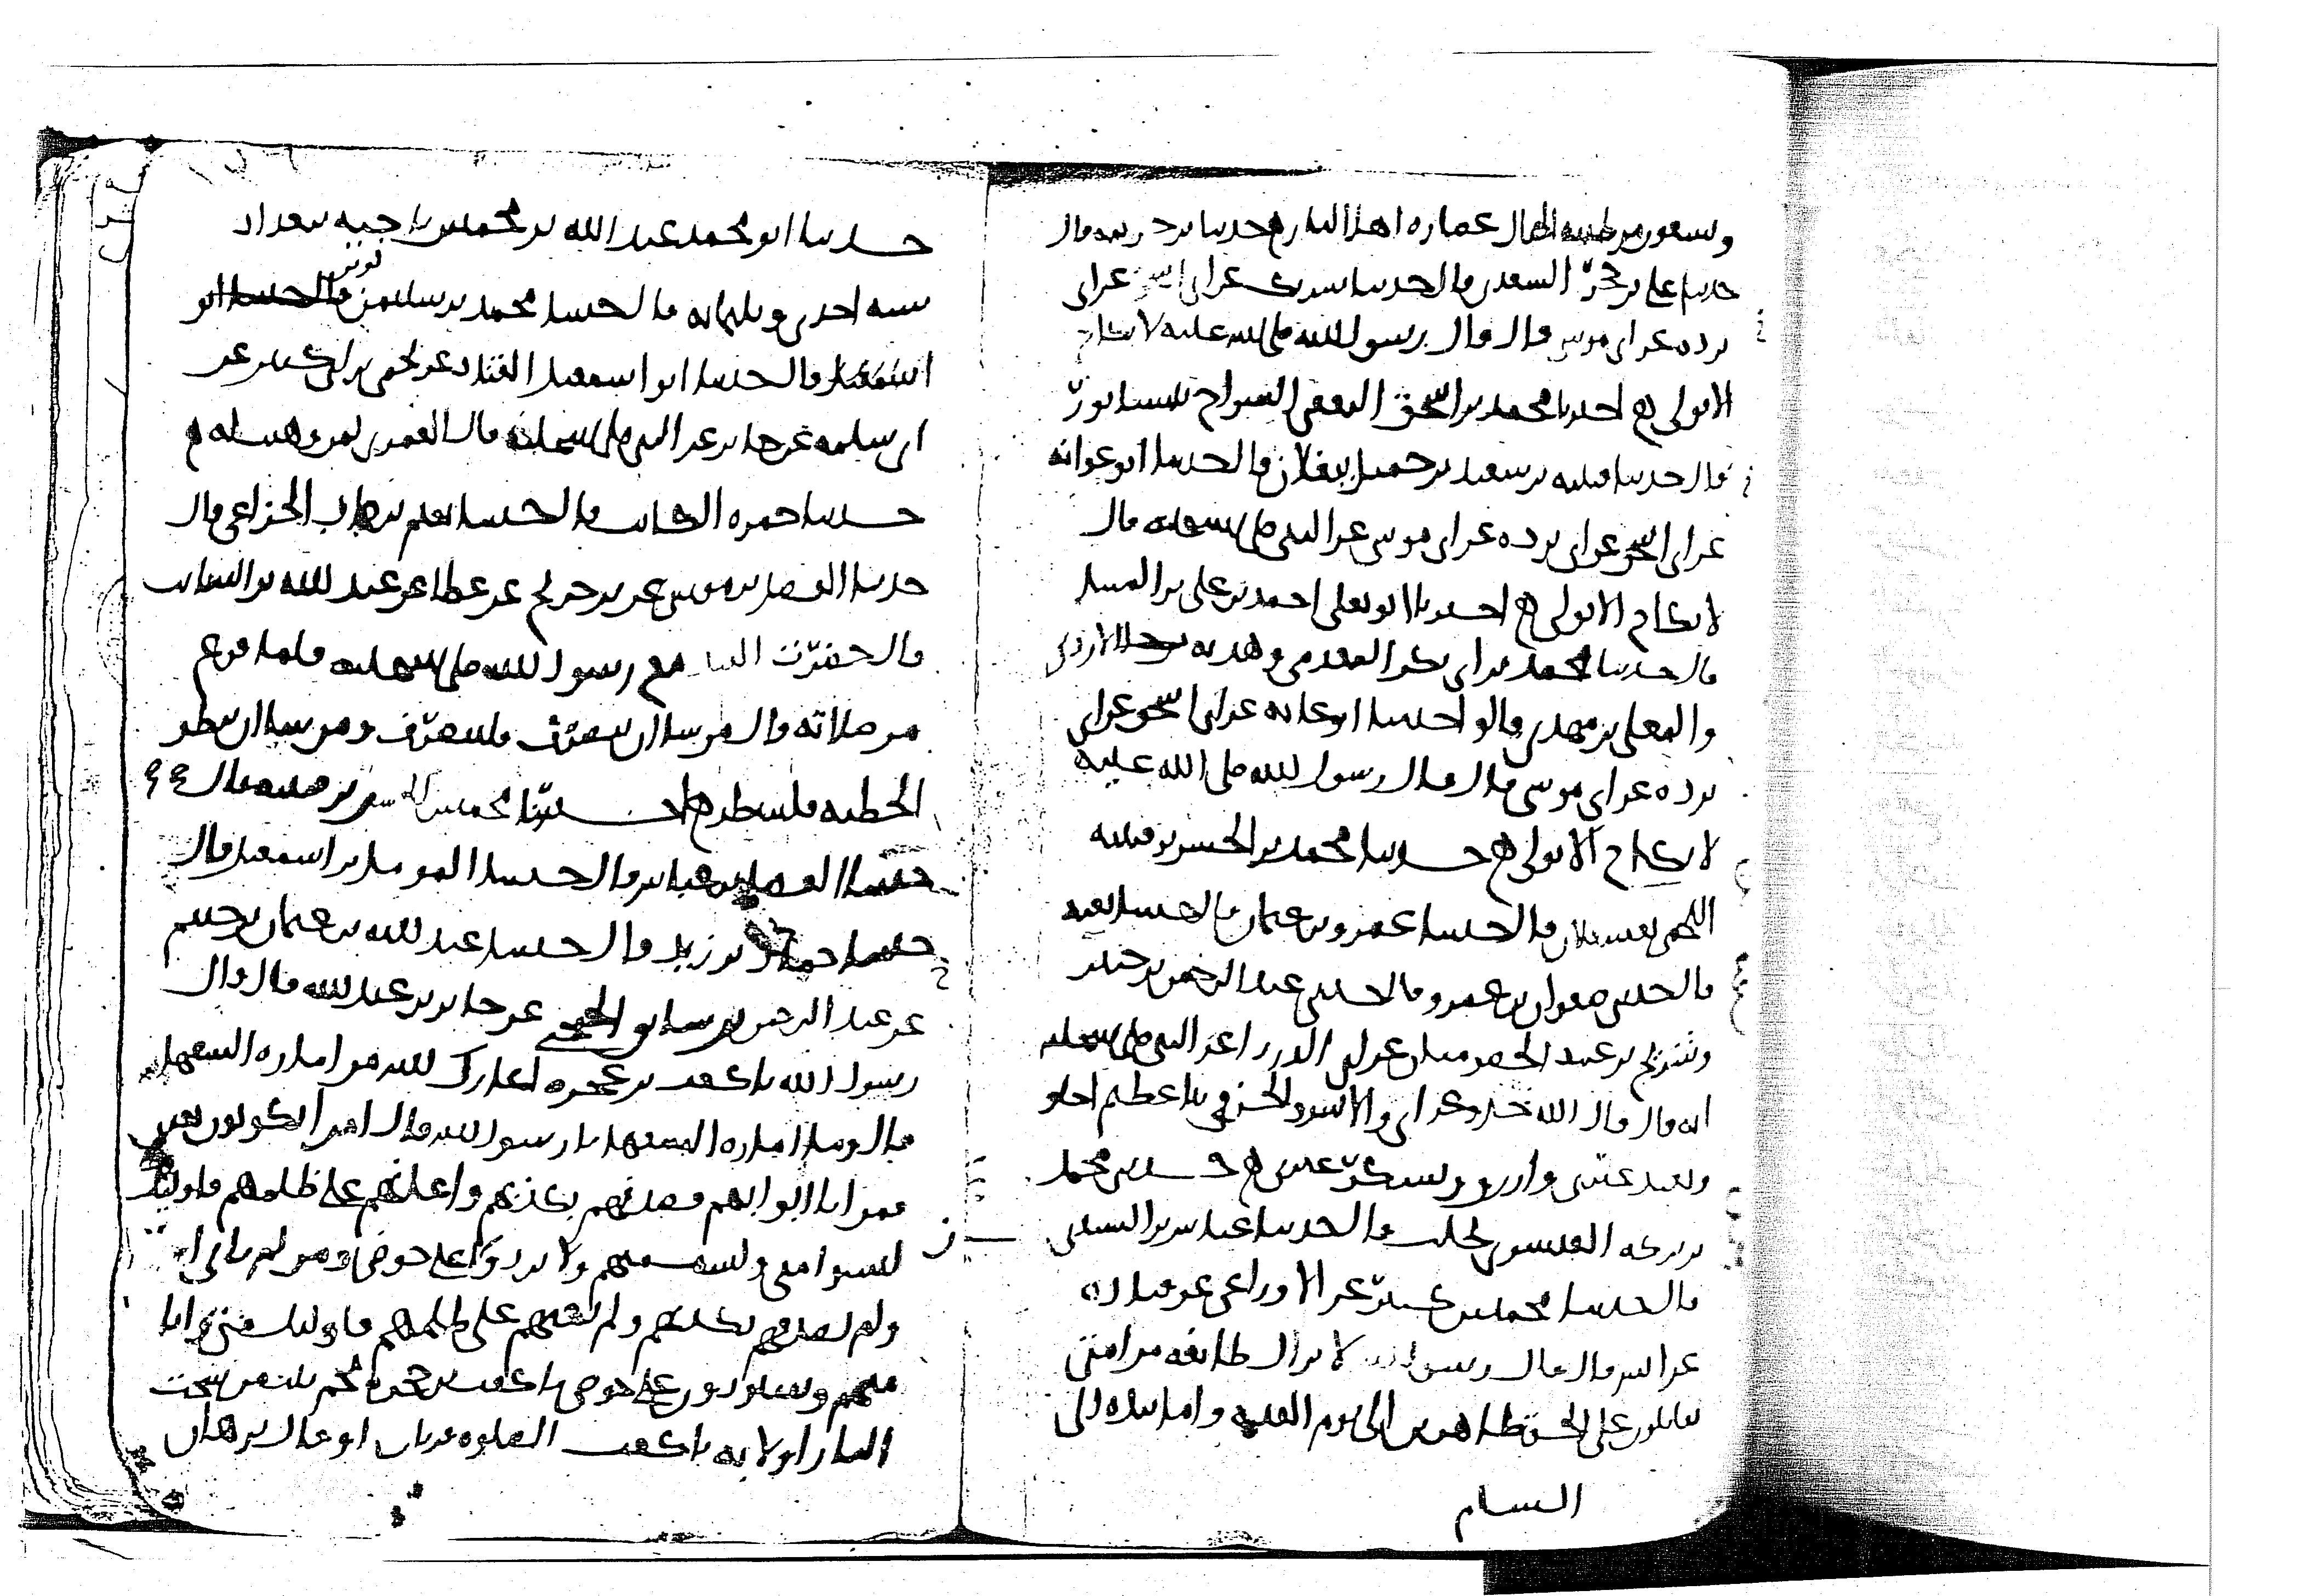 ويسقون من طينة الخبال عصارة اهل النار حدثنا بن خزيمه قال
حدثنا علي بن حجر السعدي قال حدثنا شريك عن ابي اسحق عن ابي
برده عن ابي موسى قال قال رسول الله صلى الله عليه لا نكاح
الا بولي اخبرنا محمد بن اسحق الثقفي السراج بنيسابور
قال حدثنا قتيبه بن سعيد بن جميل ببغلان قال حدثنا ابو عوانه
عن ابي اسحق عن ابي برده عن ابي موسى عن النبي صلى الله عليه قال
لا نكاح الا بولي اخبرنا ابو يعلى احمد بن علي بن المثنى
قال حدثنا محمد بن ابي بكر المقدمي وهدبه الازدي
والمعلى بن مهدي قالوا حدثنا ابو عوانه عن ابي اسحق عن ابي
برده عن ابي موسى قال قال رسول الله صلى الله عليه
لا نكاح الا بولي حدثنا محمد بن الحسن بن قتيبه
اللخمي بعسقلان قال حدثنا عمرو بن عثمان قال حدثنا بقيه
قال حدثني صفوان بن عمرو قال حدثني عبد الرحمن بن جبير
وشريح بن عبيد الحضرميان عن ابي الدردا عن النبي صلى الله عليه
انه قال قال الله عز وجل اني والانس والجن في نبا عظيم اخلق
ويعبد غيري وارزق ويشكر غيري حدثني محمد
بن بركه القنسري بحلب قال حدثنا عباس بن السندي
قال حدثنا محمد بن كثير عن الاوزاعي عن قتاده
عن انس قال قال رسول الله لا يزال طائفه من امتي
يقاتلون على الحق ظاهرين الى يوم القيمه واما بيده الى
الشام
حدثنا ابو محمد عبد الله بن محمد بن ناجيه ببغداد
سنه احدى وثلثمايه قال حدثنا محمد بن سليمن لوين
قال حدثنا ابو اسمعيل القناد عن يحيى بن ابي كثير عن
ابي سلمه عن جابر عن النبي صلى الله عليه قال العمرى لمن وهبت له
حدثنا حمزه الكاتب قال حدثنا نعيم بن حماد الخزاعي قال
حدثنا الفضل بن موسى عن بن جريج عن عطا عن عبد الله بن السائب
قال حضرت العيد مع رسول الله صلى الله عليه فلما فرغ
من صلاته قال من شا ان ينصرف فلينصرف ومن شا ان ينتظر
الخطبه فلينتظر اخبرنا محمد بن الحسين بن
حدثنا الفضل بن قال حدثنا المومل بن اسمعيل قال
حدثنا حماد بن زيد قال حدثنا عبد الله بن عثمان بن خثيم
عن عبد الرحمن بن سابط الجمحي عن جابر بن عبد الله قال قال
رسول الله يا كعب بن عجره اعاذك الله من اماره السفها
قال وما اماره السفها يا رسول الله قال امرا يكونون بعدي
فمن اتا ابوابهم فصدقهم بكذبهم واعانهم على ظلمهم فاوليك
ليسوا مني ولست منهم ولا يردوا على حوضي ومن لم ياتي
ولم يصدقهم بكذبهم ولم يعنهم على ظلمهم فاوليك مني وانا
منهم وسيردون علي حوضي يا كعب بن عجره لحم نبت من سحت
النار اولا به يا كعب الصلوه قربان او قال برهان